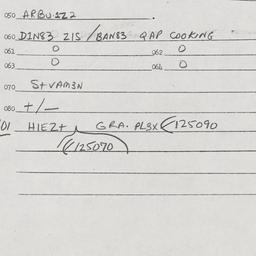 050 ARBU-1Z2.
060 DIN83 21S / BAN83 QAP COOKING
061 0 062 0
063 0 064 0
070 S+VAM3N
080 +/-
01 HIEZ+ GRA. PL3X (125090
(125070)